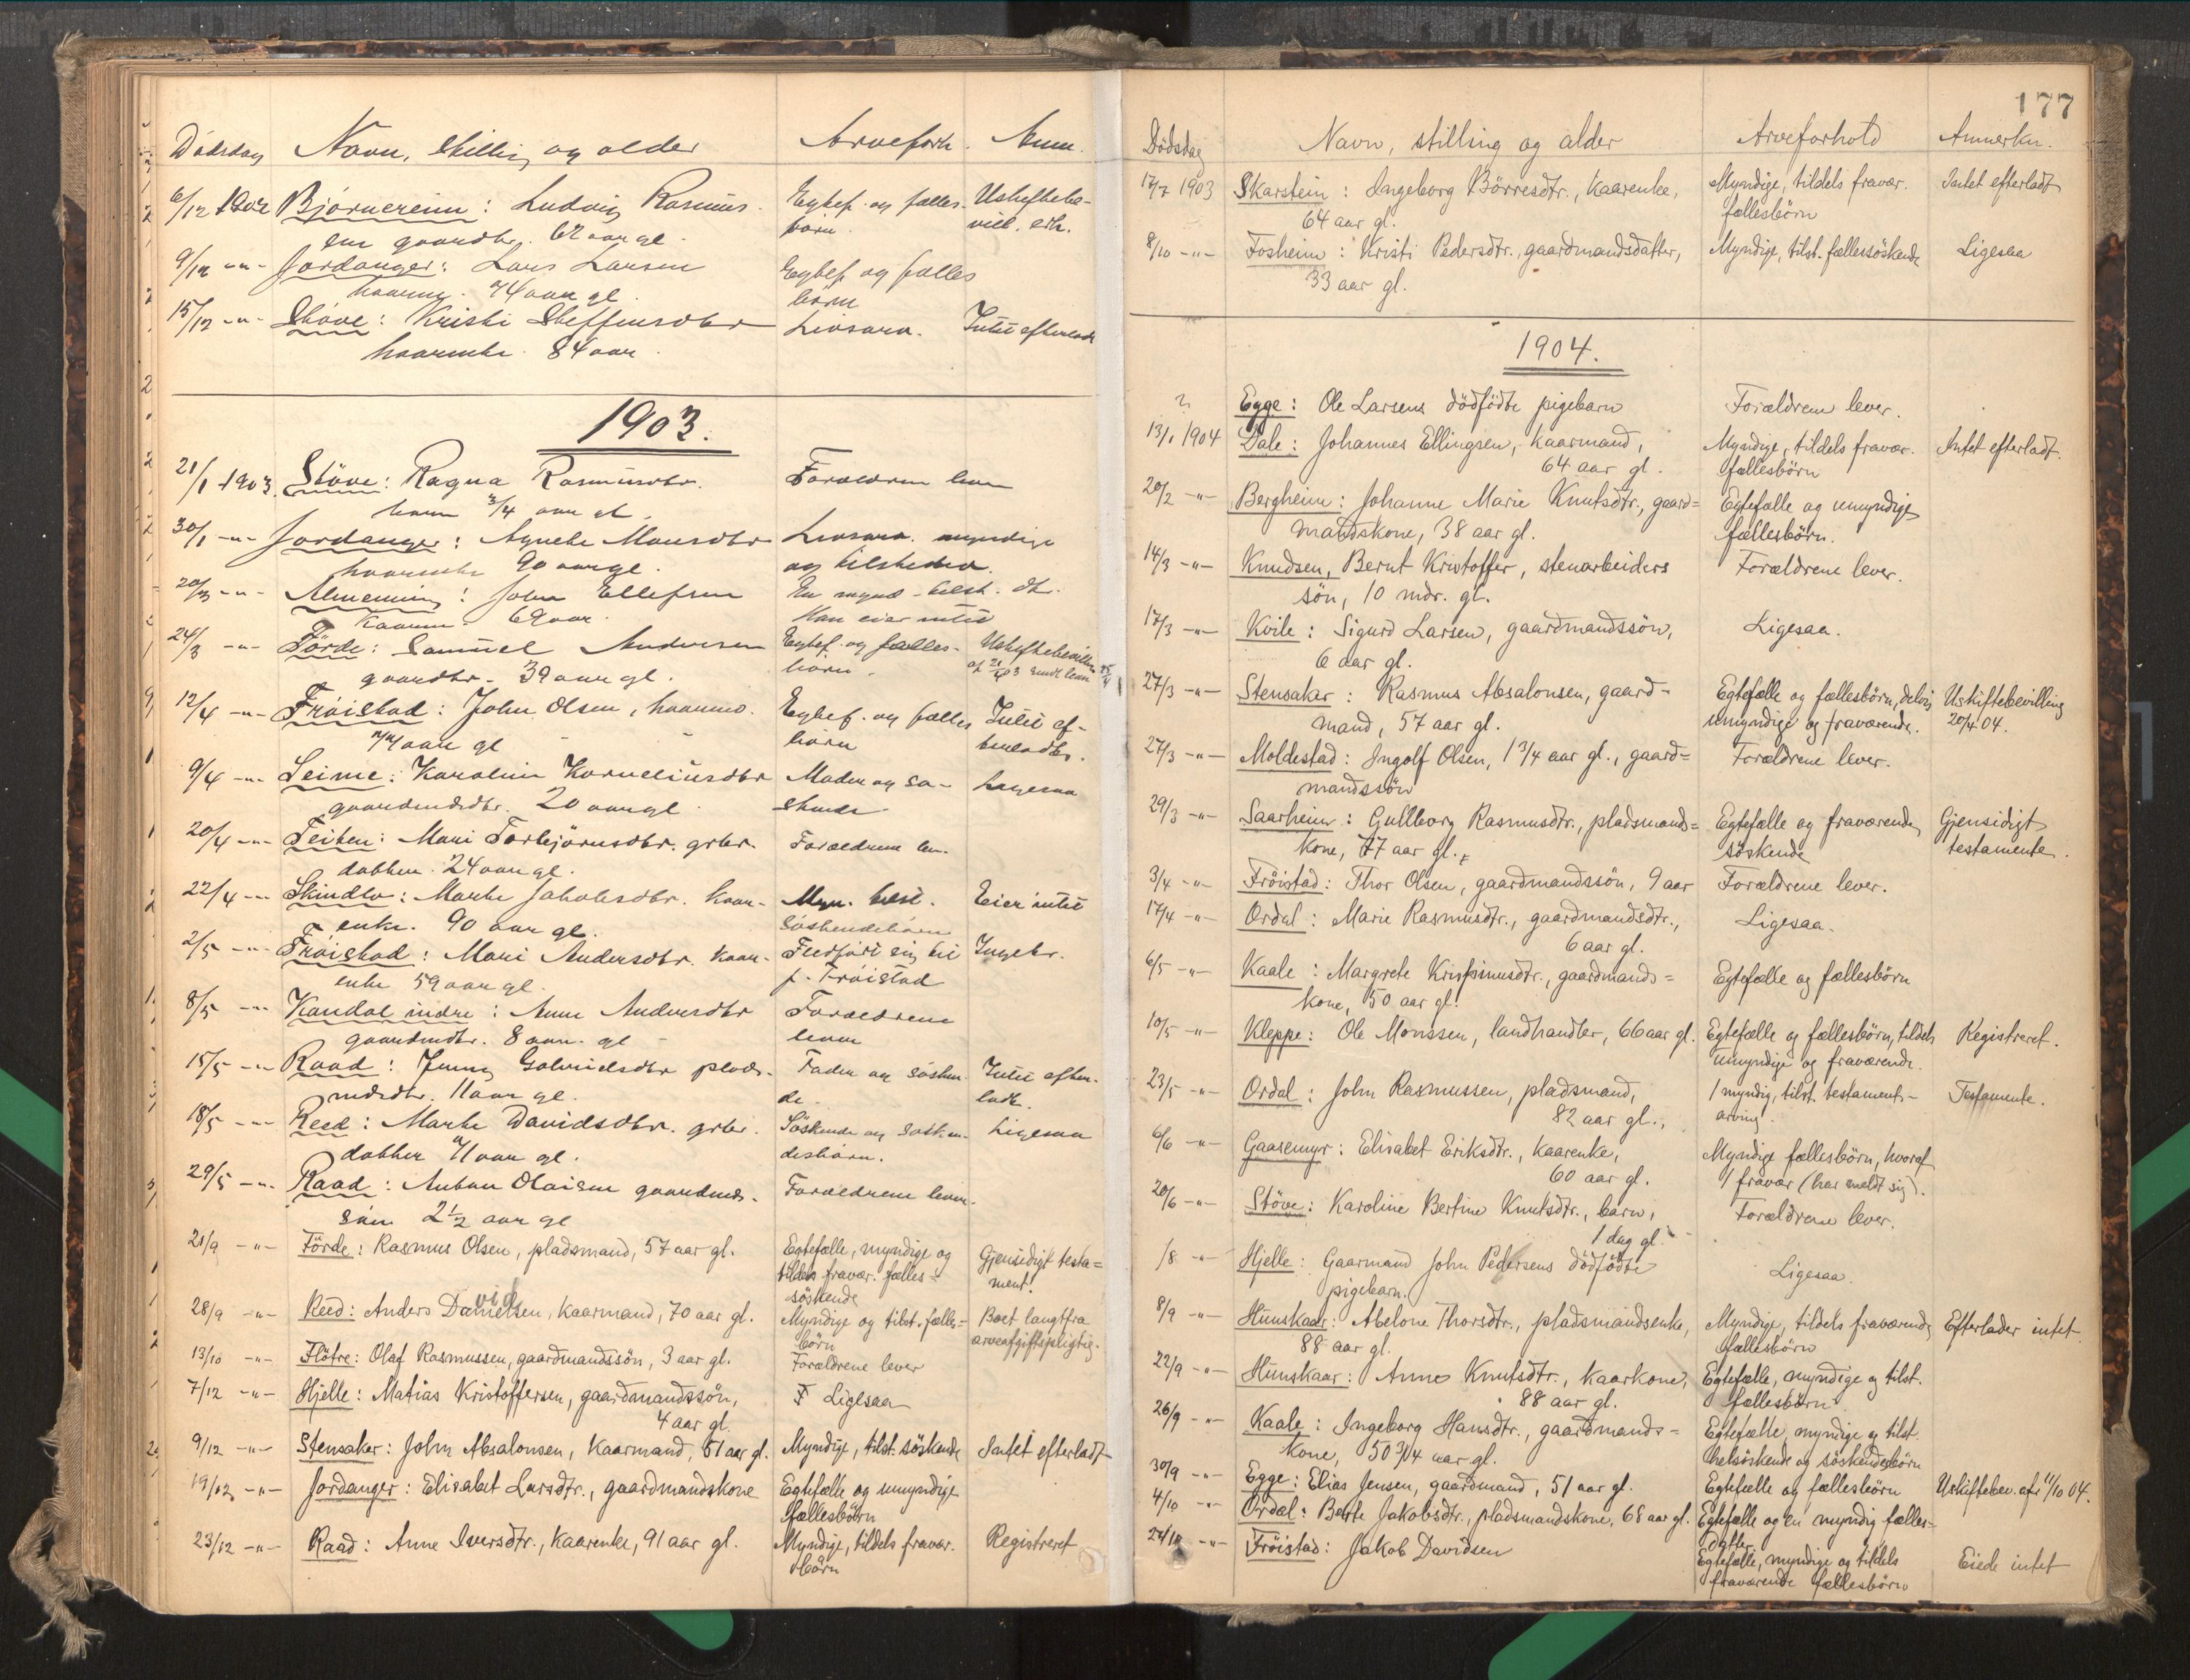 Dödsdag Navn, stilling og alder Arveforh. Anm.
6/12 1902 Bjørnereim: Ludvig Rasmus- Egtef. og fælles- Uskiftebe-
sen gaardbr. 62 aar gl. börn. vill. erh.
9/12 -"- Jordanger: Lars Larsen Egtef og fælles
74 aar gl. börn
15/12 -"- Støve: Kristi Steffensdtr Livsarv. Intet efterladt
kaarenke. 84 aar.
1903.
21/1 1903. Støve: Ragna Rasmusdtr. Forældrene lever
barn 3/4 aar gl.
30/1 -"- Jordanger: Agnete Monsdtr Livsarv. myndige
kaarenke 90 aar gl. og tilstedev.
20/3 -"- Almenning: John Ellefsen En mynd. tilst. dtr.
Kaarm. 69 aar. Han eier intet
24/3 -"- Förde: Samuel Andersen Egtef. og fælles- Uskiftebevilln
gaardbr. 39 aar gl. börn.
12/4 -"- Frøistad: John Olsen, kaarmd. Egtef. og fælles Intet ef-
74 aar gl börn terladt.
9/4 -"- Leime: Karolin Korneliusdtr Moder og sø- Ligesaa
gaardmdsdtr. 20 aar gl. skende
20/4 -"- Teiten: Mari Torbjörnsdtr. grbr. Forældrene lev.
datter. 24 aar gl.
22/4 -"- Skindlo: Marte Jakobsdtr. kaar- Myn. tilst. Eier intet
enke. 90 aar gl. Söskendebörn
2/5 -"- Frøistad: Mari Andersdtr. kaar- Fledført sig til Ingebr.
enke 59 aar gl. p. Frøistad
8/5 -"- Kandal indre: Anne Andersdtr Forældrene
gaardmdtr. 8 aar. gl lever
15/5 -"- Raad: Jenny Gabrielsdtr plads- Fader og søsken- Intet efter-
mdsdtr. 11 aar gl. de. ladt.
18/5 -"- Reed: Marte Davidsdtr. grbr. Söskende og søsken- Ligesaa
datter 71 aar gl. desbörn.
29/5 -"- Raad: Anton Olaisen gaardmds- Forældrene lever.
sön 2 1/2 aar gl
21/9 -"- Förde: Rasmus Olsen, pladsmand, 57 aar gl. Egtefælle, myndige og Gjensidigt testa=
tildels fravær. fælles= ment.
söskende
28/9 -"- Reed: Anders Davidsen, kaarmand, 70 aar gl. Myndige og tilst. fælles= Boet langtfra
börn arveafgiftspligtig.
13/10 -"- Flötre: Olaf Rasmussen, gaardmandssön, 3 aar gl. Forældrene lever
7/12 -"- Hjelle: Matias Kristoffersen, gaardmandssön, Ligesaa
4 aar gl.
9/12 -"- Stensaker: John Absalonsen, kaarmand, 51 aar gl. Myndige, tilst. söskende Intet efterladt
19/12 -"- Jordanger: Elisabet Larsdtr., gaardmandskone Egtefælle og umyndige
fællesbörn
23/12 -"- Raad: Anne Iversdtr., kaarenke, 91 aar gl. Myndige, tildels fravær. Registreret
börn
177
Dödsdag Navn, stilling og alder Arveforhold Anmerkn.
17/7 1903 Skarstein: Ingeborg Börresdtr., kaarenke, Myndige, tildels fravær. Intet efterladt
64 aar gl. fællesbörn
8/10 -"- Fosheim: Kristi Pedersdtr., gaardmandsdatter, Myndige, tilst. fællessöskende Ligesaa
33 aar gl.
1904.
? Egge: Ole Larsens dödfödte pigebarn Forældrene lever.
13/1 1904 Dale: Johannes Ellingsen, kaarmand, Myndige, tildels fravær. Intet efterladt.
64 aar gl. fællesbörn
20/2 -"- Bergheim: Johanne Marie Knutsdtr., gaard= Egtefælle og umyndige
mandskone, 38 aar gl. fællesbörn.
14/3 -"- Knudsen, Bernt Kristoffer, stenarbeiders Forældrene lever.
sön, 10 mdr. gl.
17/3 -"- Kvile: Sigurd Larsen, gaardmandssön, Ligesaa.
6 aar gl.
27/3 -"- Stensaker: Rasmus Absalonsen, gaard- Egtefælle og fællesbörn, delvis Uskiftebevilling
mand, 57 aar gl. umyndige og fraværende. 20/4 04.
27/3 -"- Moldestad: Ingolf Olsen, 1 3/4 aar gl., gaard= Forældrene lever.
mandssön
29/3 -"- Saarheim: Gullborg Rasmusdtr., pladsmands= Egtefælle og fraværende Gjensidigt
kone, 77 aar gl. söskende testamente.
3/4 -"- Fröistad: Thor Olsen, gaardmandssön, 9 aar Forældrene lever.
17/4 -"- Ordal: Marie Rasmusdtr., gaardmandsdtr., Ligesaa.
6 aar gl.
6/5 -"- Kaale: Margrete Krispinusdtr., gaardmands= Egtefælle og fællesbörn
kone, 50 aar gl.
10/5 -"- Kleppe: Ole Monssen, landhandler, 66 aar gl. Egtefælle og fællesbörn, tildels Registreret.
umyndige og fraværende.
23/5 -"- Ordal: John Rasmussen, pladsmand, 1 myndig, tilst. testaments- Testamente.
82 aar gl., arving.
6/6 -"- Gaasemyr: Elisabet Eriksdtr., kaarenke, Myndige fællesbörn, hvoraf
60 aar gl. 1 fravær (har meldt sig).
20/6 -"- Stöve: Karoline Bertine Knutsdtr., barn, Forældrene lever.
1 dag gl.
/8 -"- Hjelle: Gaarmand John Pedersens dödfödte Ligesaa.
pigebarn.
8/9 -"- Hunskaar: Abelone Thorsdtr., pladsmandsenke, Myndige, tildels fraværende Efterlader intet
88 aar gl. fællesbörn
22/9 -"- Hunskaar: Anne Knutsdtr., kaarkone, Egtefælle, myndige og tilst.
88 aar gl. fællesbörn
26/9 -"- Kaale: Ingeborg Hansdtr., gaardmands= Egtefælle, myndige og tilst.
kone, 50 3/4 aar gl. helsöskende og söskendesbörn
30/9 -"- Egge: Elias Jensen, gaardmand, 51 aar gl. Egtefælle og fællesbörn Uskiftebev. af 11/10 04.
4/10 -"- Ordal: Berte Jakobsdtr., pladsmandskone, 68 aar gl. Egtefælle og en myndig fælles-
datter
24/10 -"- Fröistad: Jakob Davidsen Egtefælle, myndige og tildels Eiede intet
fraværende fællesbörn